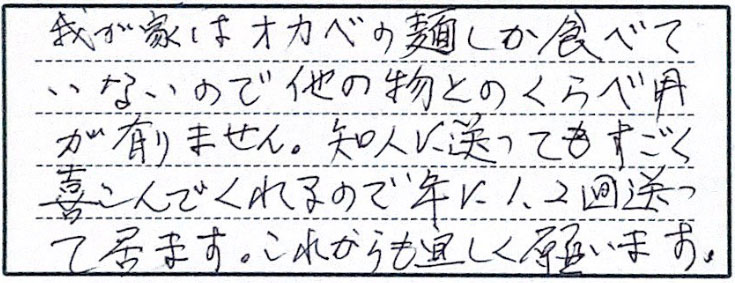 我が家はオカベの麺しか食べて
いないので他の物とのくらべ用
が有りません。知人に送ってもすごく
喜こんでくれるので年に1、2回送っ
て居ます。これからも宜しく願います。